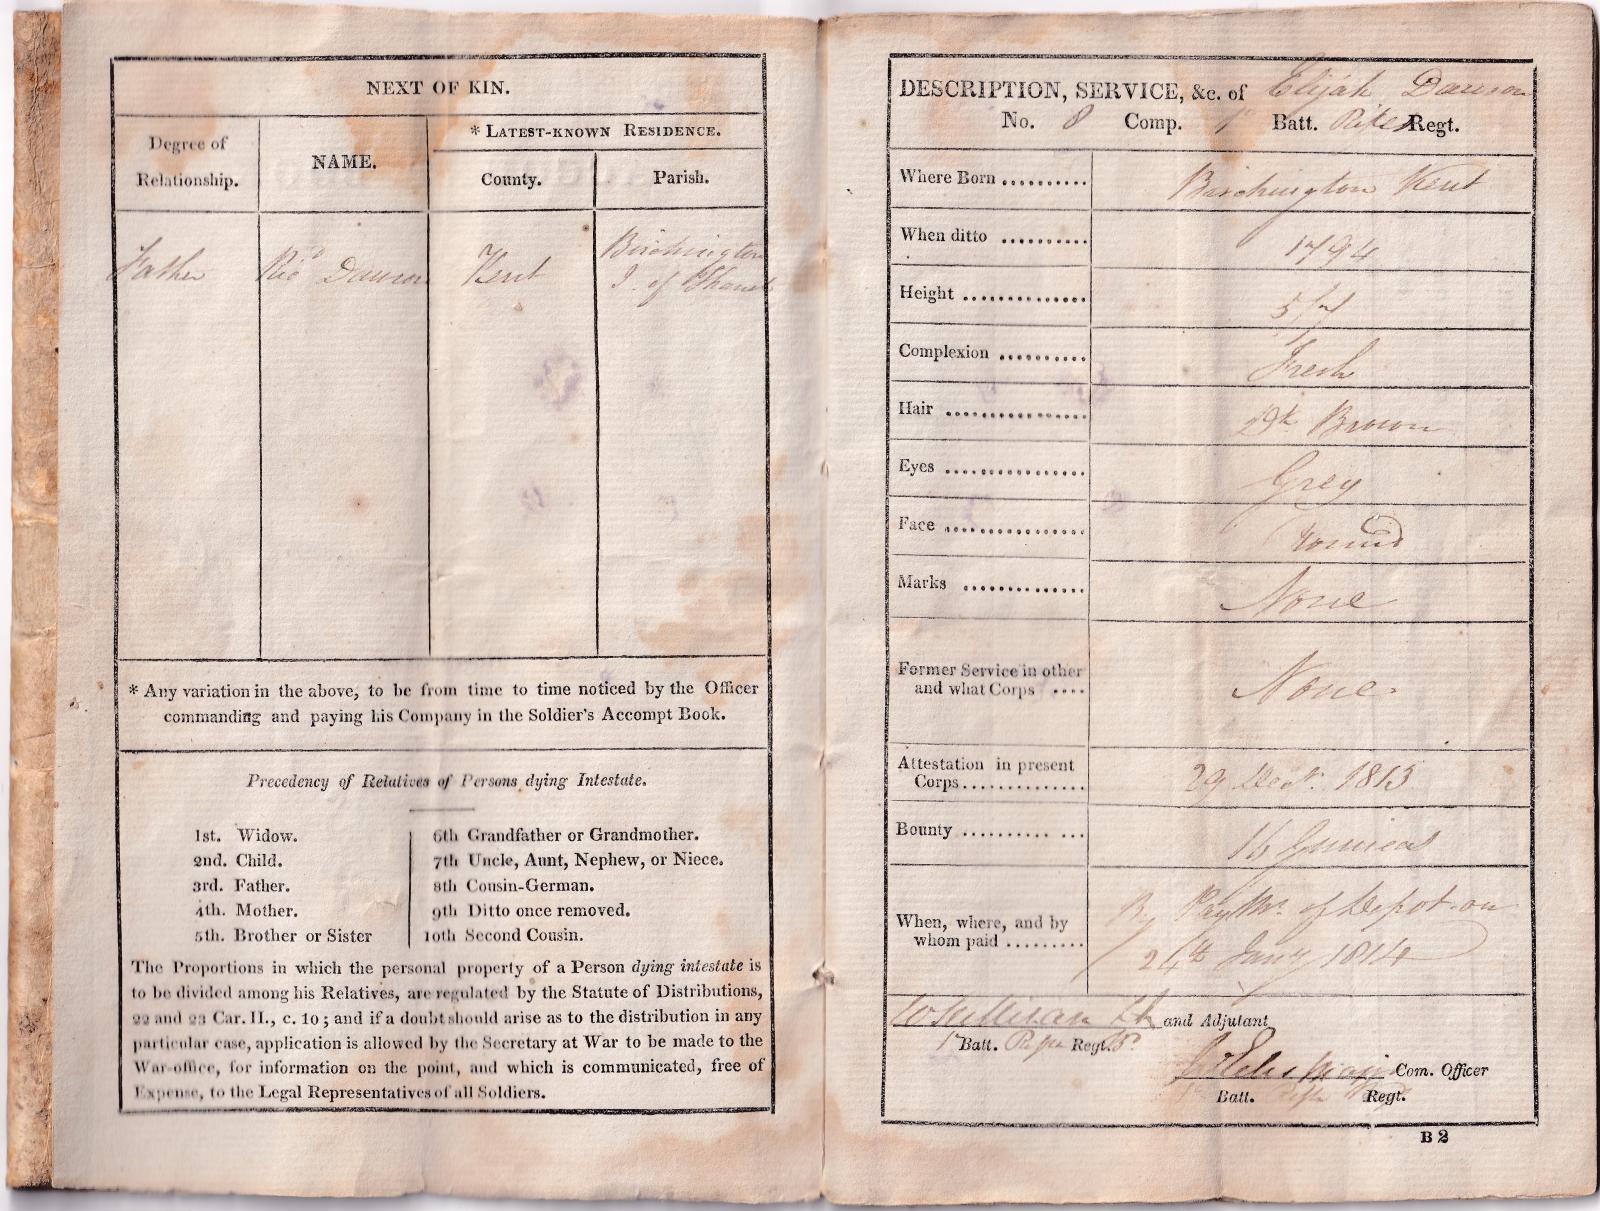 NEXT OF KIN.
Degree of Relationship.
NAME.
* LATEST-KNOWN RESIDENCE.
County.
Parish.
Father
Ricd Dawson
Kent
Birchington
I. of Thanet
* Any variation in the above, to be from time to time noticed by the Officer
commanding and paying his Company in the Soldier's Accompt Book.
Precedency of Relatives of Persons dying Intestate.
1st. Widow.
2nd. Child.
3rd. Father.
4th. Mother.
5th. Brother or Sister
6th Grandfather or Grandmother.
7th Uncle, Aunt, Nephew, or Niece.
8th Cousin-German.
9th Ditto once removed.
10th Second Cousin.
The Proportions in which the personal property of a Person dying intestate is
to be divided among his Relatives, are regulated by the Statute of Distributions,
22 and 23 Car. II., c. 10; and if a doubt should arise as to the distribution in any
particular case, application is allowed by the Secretary at War to be made to the
War-office, for information on the point, and which is communicated, free of
Expense, to the Legal Representatives of all Soldiers.
DESCRIPTION, SERVICE, &c. of Elijah Dawson
No. 8 Comp. 1st Batt. Rifle Regt.
Where Born .......... Birchington Kent
When ditto .......... 1794
Height .............. 5/7
Complexion .......... Fresh
Hair ................ Dk Brown
Eyes ................ Grey
Face ................ Round
Marks .............. None
Former Service in other
and what Corps .... None
Attestation in present
Corps.............. 29 Decr. 1813
Bounty .......... ... 16 Guineas
When, where, and by
whom paid ......... By PayMr. of Depot on
24th Jany 1814
Lt and Adjutant
1st Batt. Rifle Regt.
Com. Officer
Batt. Rifle Regt.
B 2